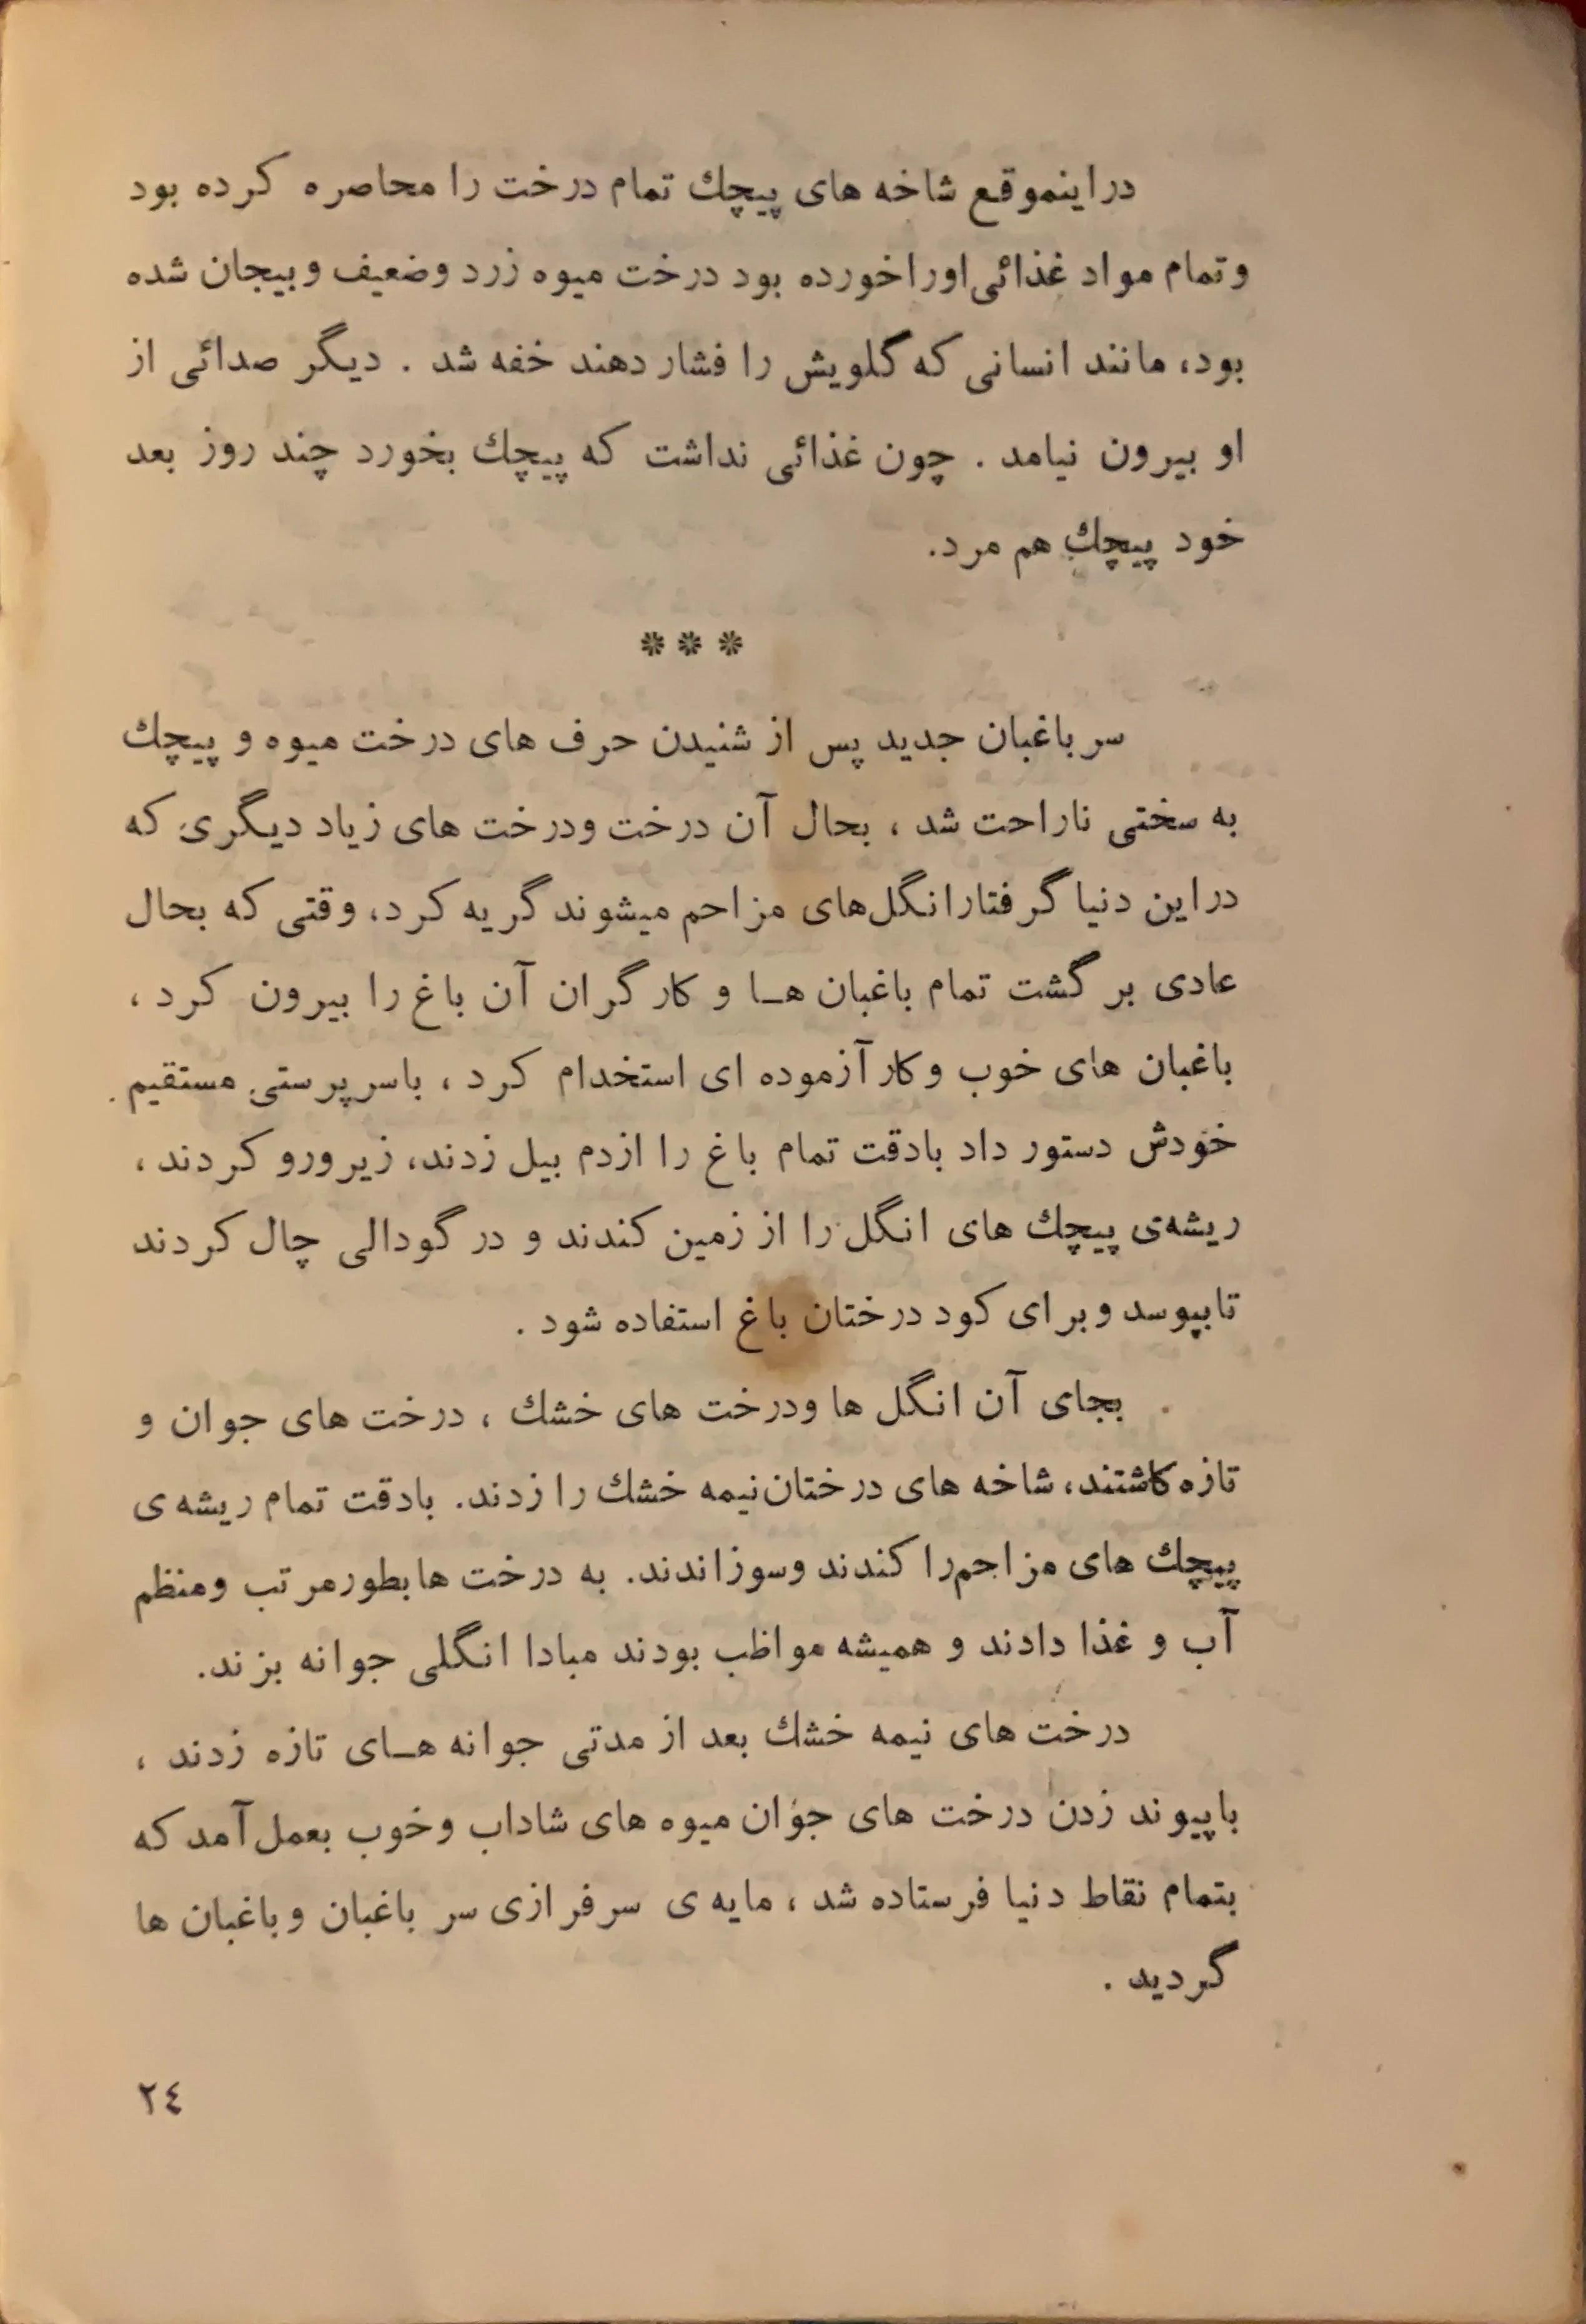 دراینموقع شاخه های پیچك تمام درخت را محاصره کرده بود
وتمام مواد غذائی اوراخورده بود درخت میوه زرد وضعیف وبیجان شده
بود، مانند انسانی که گلویش را فشار دهند خفه شد . دیگر صدائی از
او بیرون نیامد . چون غذائی نداشت که پیچك بخورد چند روز بعد
خود پیچك هم مرد.
* * *
سر باغبان جدید پس از شنیدن حرف های درخت میوه و پیچك
به سختی ناراحت شد ، بحال آن درخت ودرخت های زیاد دیگری که
دراین دنیا گرفتارانگل‌های مزاحم میشوند گریه کرد، وقتی که بحال
عادی بر گشت تمام باغبان هـا و کار گران آن باغ را بیرون کرد ،
باغبان های خوب وکار آزموده ای استخدام کرد ، باسرپرستی مستقیم
خودش دستور داد بادقت تمام باغ را ازدم بیل زدند، زیرورو کردند ،
ریشه‌ی پیچك های انگل را از زمین کندند و در گودالی چال کردند
تابپوسد وبرای کود درختان باغ استفاده شود .
بجای آن انگل ها ودرخت های خشك ، درخت های جوان و
تازه کاشتند، شاخه های درختان نیمه خشك را زدند. بادقت تمام ریشه ی
پیچك های مزاحم‌را کندند وسوزاندند. به درخت هابطورمرتب ومنظم
آب و غذا دادند و همیشه مواظب بودند مبادا انگلی جوانه بزند.
درخت های نیمه خشك بعد از مدتی جوانه هـای تازه زدند ،
باپیوند زدن درخت های جوان میوه های شاداب وخوب بعمل‌آمد که
بتمام نقاط دنیا فرستاده شد ، مایه ی سرفرازی سر باغبان وباغبان ها
گردید .
٢٤